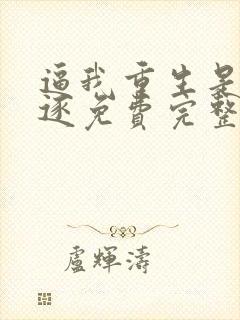 逼我重生是
逐免费完整
盧輝濤